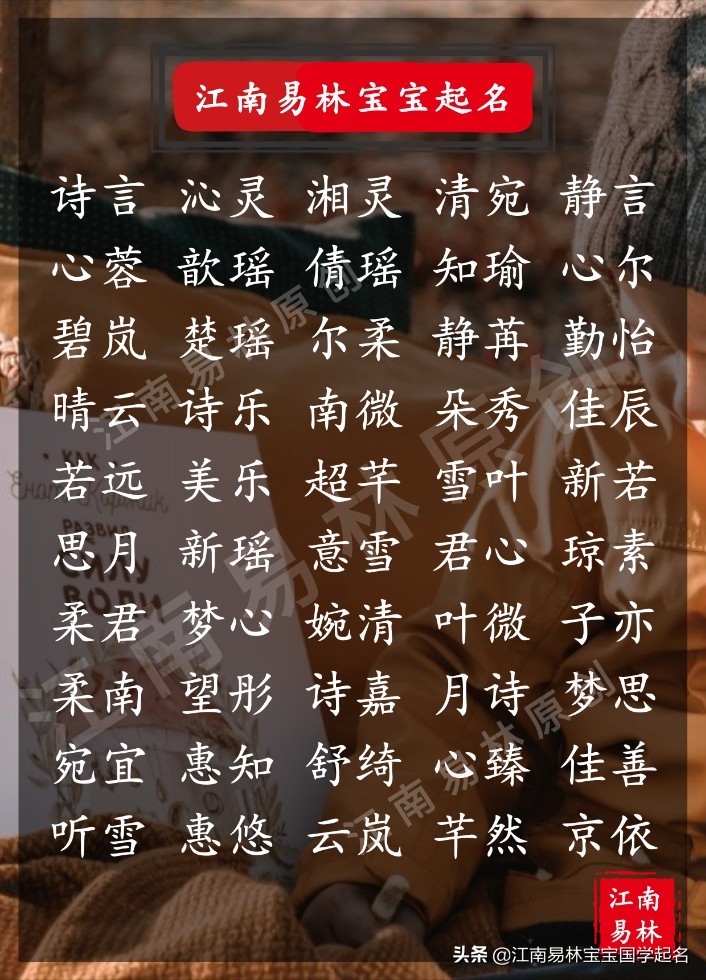 江南易林宝宝起名
诗言 沁灵 湘灵 清宛 静言
心蓉 歆瑶 倩瑶 知瑜 心尔
碧岚 楚瑶 尔柔 静苒 勤怡
晴云 诗乐 南微 朵秀 佳辰
若远 美乐 超芊 雪叶 新若
思月 新瑶 意雪 君心 琼素
柔君 梦心 婉清 叶微 子亦
柔南 望彤 诗嘉 月诗 梦思
宛宜 惠知 舒绮 心臻 佳善
听雪 惠悠 云岚 芊然 京依
江南易林原创
江南易林原创
江南易林原创
РАЗВИЛ
СИЛУ
ВОЛИ
江南
易林
头条 @江南易林宝宝国学起名